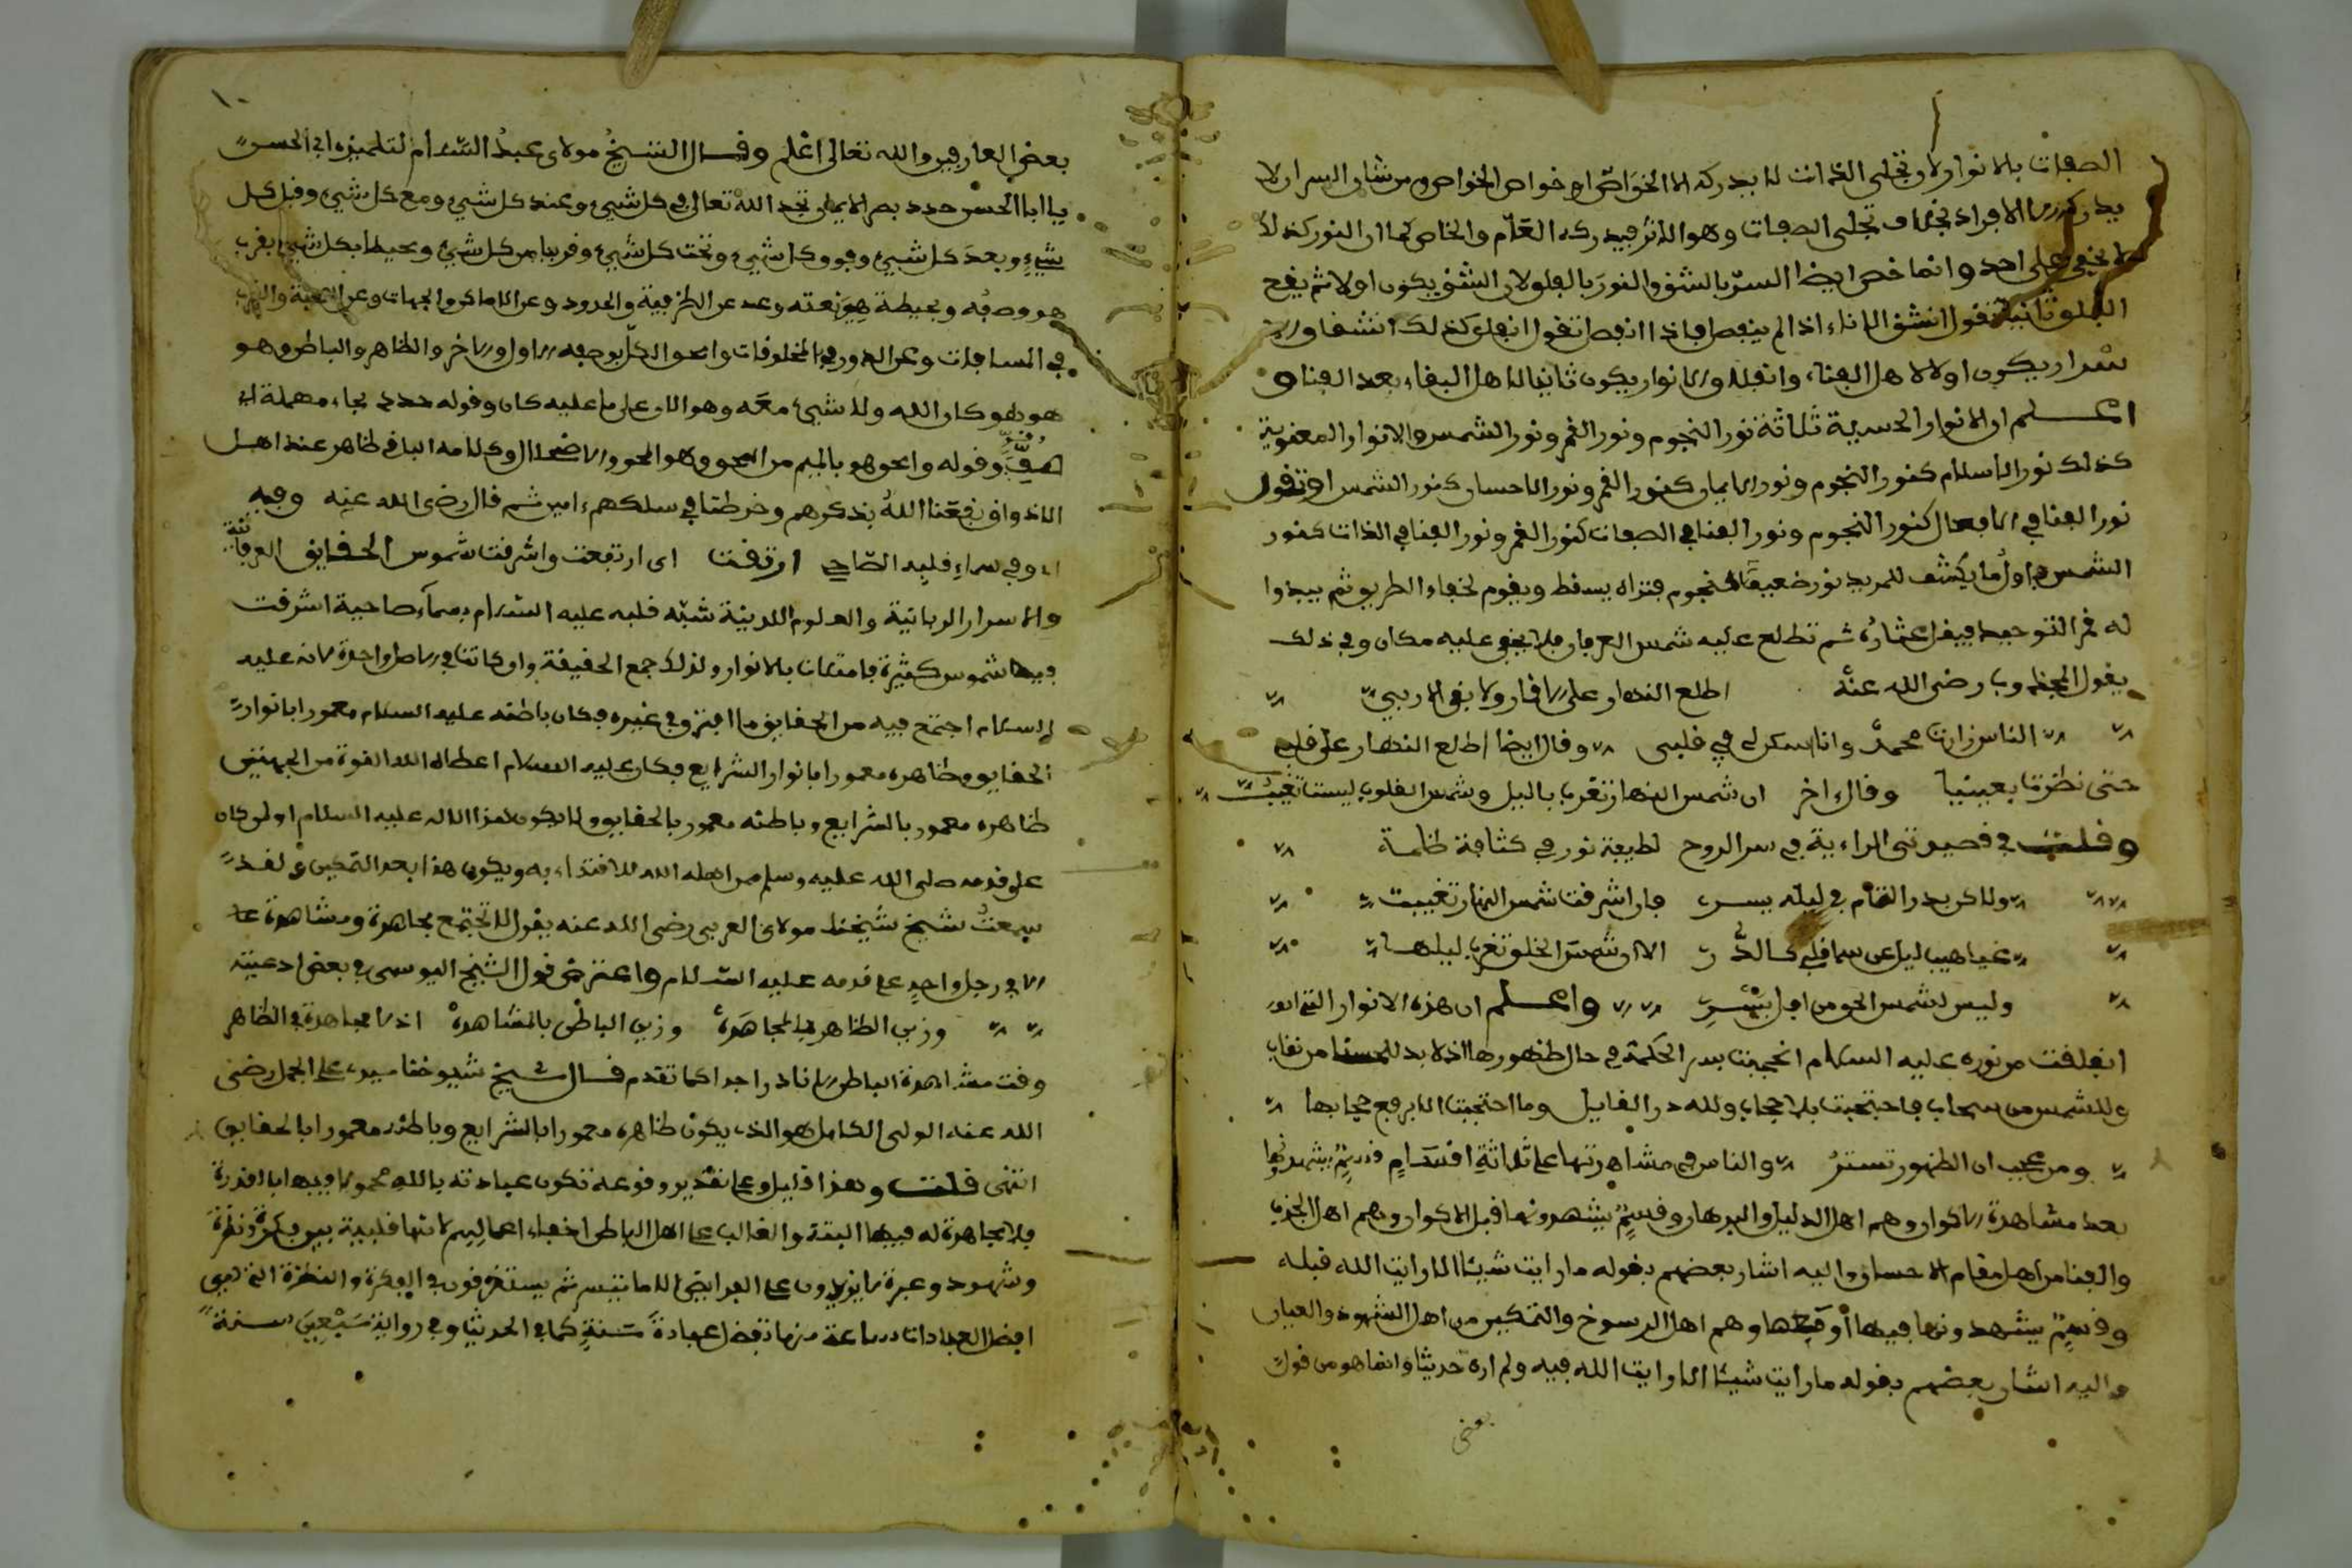 الصفات بالانوار لان تجلى الذات لا يدركه الا الخواص او خواص الخواص ومن شان السر ان لا
يدركه الا الافراد بخلاف تجلى الصفات وهو الاثر فيدركه العام والخاص كما ان النور كذلك
لا يخفى على احد وانما خص ايضا السر بالشق والنور بالفلق لان الشق يكون اولا ثم يقع
الفلق ثانيا تقول انشق الاناء اذا لم ينفصل فاذا انفصل تقول انفلق كذلك انشقاق الا
سرار يكون اولا لاهل الفناء وانفلاق الانوار يكون ثانيا لاهل البقاء بعد الفنا و
اعلم ان الانوار الحسية ثلاثة نور النجوم ونور القمر ونور الشمس والانوار المعنوية
كذلك نور الاسلام كنور النجوم ونور الايمان كنور القمر ونور الاحسان كنور الشمس او تقول
نور الفنا في الافعال كنور النجوم ونور الفنا في الصفات كنور القمر ونور الفنا في الذات كنور
الشمس فاول ما يكشف للمريد نور ضعيف كالنجوم فتراه يسقط ويقوم لخفاء الطريق ثم يبدوا
له قمر التوحيد فيقل عثاره ثم تطلع عليه شمس العرفان فلا يخفى عليه مكان وفي ذلك
يقول المجذوب رضى الله عنه اطلع النهار على الاقمار ولا بقى الا ربي
الناس زارت محمد وانا سكن لي في قلبى وقال ايضا اطلع النهار على قلبي
حتى نظرت بعينيا وقال اخر ان شمس النهار تغرب بالليل وشمس القلوب ليست تغيب
وقلت في قصيدتى الراءية في سر الروح لطيفة نور في كثافة ظلمة
ولاكن بدر التام في ليله يسر فان اشرقت شمس النهار تغيبت
غياهب ليل عن سما قلبي كالدر الا ان شمس الخلق تغرب ليلها
وليس لشمس الحق من افل يسر واعلم ان هذه الانوار التى
انفلقت من نوره عليه السلام انحجبت بسر الحكمة في حال ظهورها اذ لا بد للحسنا من نقاب
وللشمس من سحاب فاحتجبت بلا حجاب ولله در القايل وما احتجبت الا برفع حجابها
ومن عجب ان الظهور تستر والناس في مشاهدتها على ثلاثة اقسام قسم يشهدونها
بعد مشاهدة الاكوان وهم اهل الدليل والبرهان وقسم يشهدونها قبل الاكوان وهم اهل الجذب
والفنا من اهل مقام الاحسان واليه اشار بعضهم بقوله ما رايت شيئا الا رايت الله قبله
وقسم يشهدونها فيها او معها وهم اهل الرسوخ والتمكين من اهل الشهود والعيان
واليه اشار بعضهم بقوله ما رايت شيئا الا رايت الله فيه ولم اره حديثا وانما هو من قول
بعض
١٠
بعض العارفين والله تعالى اعلم وقال الشيخ مولاى عبد السلام لتلميذه ابي الحسن
يا ابا الحسن حدد بصر الايمان تجد الله تعالى في كل شيء وعند كل شيء ومع كل شيء وقبل كل
شيء وبعد كل شيء وفوق كل شيء وتحت كل شيء وقريبا من كل شيء ومحيطا بكل شيء بقرب
هو وصفه وبحيطة هي نعته وعد عن الظرفية والحدود وعن الاماكن والجهات وعن الصحبة والقرب
في المسافات وعن الدور في المخلوقات وامحو الكل بوصفه الاول والاخر والظاهر والباطن وهو
هو هو كان الله ولا شيء معه وهو الان على ما عليه كان وقوله حدد بحاء مهملة اي
وقوله وامحو هو بالميم من المحو وهو المحو والاضمحلال وكلامه الباقى ظاهر عند اهل
الاذواق نفعنا الله بذكرهم وخرطنا في سلكهم ءامين ثم قال رضى الله عنه وفيه
اي وفي سماء قلبه الصاحى ارتقت اى ارتفعت واشرقت شموس الحقايق العرفانية
والاسرار الربانية والعلوم اللدنية شبه قلبه عليه السلام بسماء صاحية اشرقت
فيها شموس كثيرة فامتلات بالانوار ولذلك جمع الحقيقة وان كانت في الاصل واحدة لانه عليه
السلام اجتمع فيه من الحقايق ما افترق في غيره فكان باطنه عليه السلام معمورا بانوار
الحقايق وظاهره معمورا بانوار الشرايع فكان عليه السلام اعطاه الله القوة من الجهتين
ظاهره معمور بالشرايع وباطنه معمور بالحقايق ولا يكون هذا الا له عليه السلام او لمن كان
على قدمه صلى الله عليه وسلم ممن اهله الله للاقتداء به ويكون هذا بعد التمكين ولقد
سمعت شيخ شيخنا مولاى العربى رضى الله عنه يقول لا تجتمع مجاهدة ومشاهدة
الا في رجل واحد على قدمه عليه السلام واعترض قول الشيخ اليوسى في بعض ادعيته
وزين الظاهر بالمجاهدة وزين الباطن بالمشاهدة اذ لا مجاهدة في الظاهر
وقت مشاهدة الباطن الا نادرا جدا كما تقدم قال شيخ شيوخنا سيدى على الجمل رضى
الله عنه الولى الكامل هو الذى يكون ظاهره معمورا بالشرايع وباطنه معمورا بالحقايق
انتهى قلت وهذا قليل وعلى تقدير وقوعه تكون عبادته بالله محمولا فيها بالقدرة
فلا مجاهدة له فيها البتة والغالب على اهل الباطن اخفاء اعمالهم لانها قلبية بين فكرة ونظرة
وشهود وعبرة لا يزيدون على الفرايض الا ما تيسر ثم يستغرقون في الفكرة والنظرة التى هي
افضل العبادات ساعة منها تفضل عبادة سنة كما في الحديث وفي رواية سبعين سنة